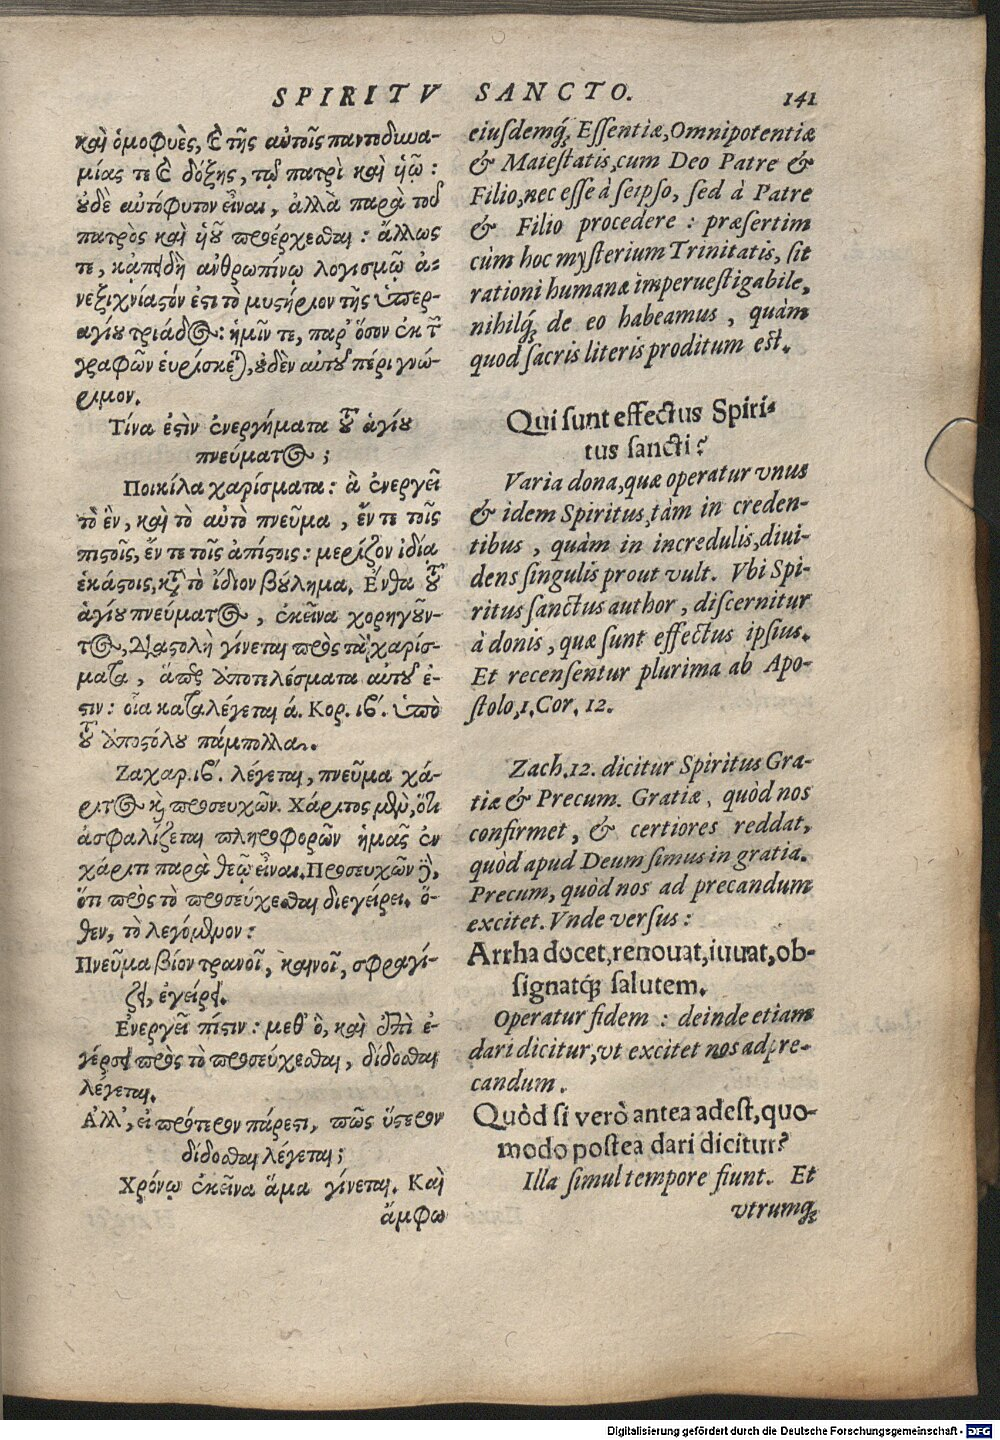 SPIRITV SANCTO. 141
καὶ ὁμοφυὲς, καὶ τῆς αὐτοῖς παντοδυνα-
μίας τε καὶ δόξης, τῷ πατρὶ καὶ ὑῷ:
οὐδὲ αὐτόφυτον εἶναι, ἀλλὰ παρὰ τοῦ
πατρὸς καὶ ὑοῦ προέρχεσθαι: ἄλλως
τε, κἀπειδὴ ἀνθρωπίνῳ λογισμῷ ἀ-
νεξιχνίαστόν ἐστι τὸ μυστήριον τῆς ὑπερ-
αγίου τριάδος: ἡμῖν τε, παρ' ὅσον ἐκ τῶν
γραφῶν εὑρίσκεται, οὐδὲν αὐτοῦ πέρι γνώ-
ριμον.
Τίνα ἐστὶν ἐνεργήματα τοῦ ἁγίου
πνεύματος;
Ποικίλα χαρίσματα: ἃ ἐνεργεῖ
τὸ ἓν, καὶ τὸ αὐτὸ πνεῦμα, ἔν τε τοῖς
πιστοῖς, ἔν τε τοῖς ἀπίστοις: μερίζον ἰδία
ἑκάστοις, κατὰ τὸ ἴδιον βούλημα. Ἔνθα τοῦ
ἁγίου πνεύματος, ἐκεῖνα χορηγοῦν-
τος, διαστολὴ γίνεται πρὸς τὰ χαρίσ-
ματα, ἅπερ ἀποτελέσματα αὐτοῦ ἐ-
στιν: οἷα καταλέγεται ά. Κορ. ιβ'. ὑπὸ
τοῦ ἀποστόλου πάμπολλα.
Ζαχαρ. ιβ'. λέγεται, πνεῦμα χά-
ριτος καὶ προσευχῶν. Χάριτος μὲν, ὅτι
ἀσφαλίζεται πληροφορῶν ἡμᾶς ἐν
χάριτι παρὰ θεῷ εἶναι. Προσευχῶν δὲ,
ὅτι πρὸς τὸ προσεύχεσθαι διεγείρει. ὅ-
θεν, τὸ λεγόμενον:
Πνεῦμα βίον τρανοῖ, καινοῖ, σφραγί-
ζει, ἐγείρει.
Ἐνεργεῖ πίστιν: μεθ' ὃ, καὶ ἐπὶ ἐ-
γέρσει πρὸς τὸ προσεύχεσθαι, δίδοσθαι
λέγεται.
Ἀλλ', εἰ πρότερον πάρεστι, πῶς ὕστερον
δίδοσθαι λέγεται;
Χρόνῳ ἐκεῖνα ἅμα γίνεται. Καὶ
ἄμφω
eiusdemq́; Essentiæ, Omnipotentiæ
& Maiestatis, cum Deo Patre &
Filio, nec esse à seipso, sed à Patre
& Filio procedere: præsertim
cùm hoc mysterium Trinitatis, sit
rationi humanæ imperuestigabile,
nihilq́; de eo habeamus, quàm
quod sacris literis proditum est.
Qui sunt effectus Spiri-
tus sancti?
Varia dona, quæ operatur vnus
& idem Spiritus, tàm in creden-
tibus, quàm in incredulis, diui-
dens singulis prout vult. Vbi Spi-
ritus sanctus author, discernitur
à donis, quæ sunt effectus ipsius.
Et recensentur plurima ab Apo-
stolo, 1. Cor. 12.
Zach. 12. dicitur Spiritus Gra-
tiæ & Precum. Gratiæ, quòd nos
confirmet, & certiores reddat,
quòd apud Deum simus in gratia.
Precum, quòd nos ad precandum
excitet. Vnde versus:
Arrha docet, renouat, iuuat, ob-
signatq́; salutem.
Operatur fidem: deinde etiam
dari dicitur, vt excitet nos ad pre-
candum.
Quòd si verò antea adest, quo-
modo postea dari dicitur?
Illa simul tempore fiunt. Et
vtrumq;
Digitalisierung gefördert durch die Deutsche Forschungsgemeinschaft - DFG